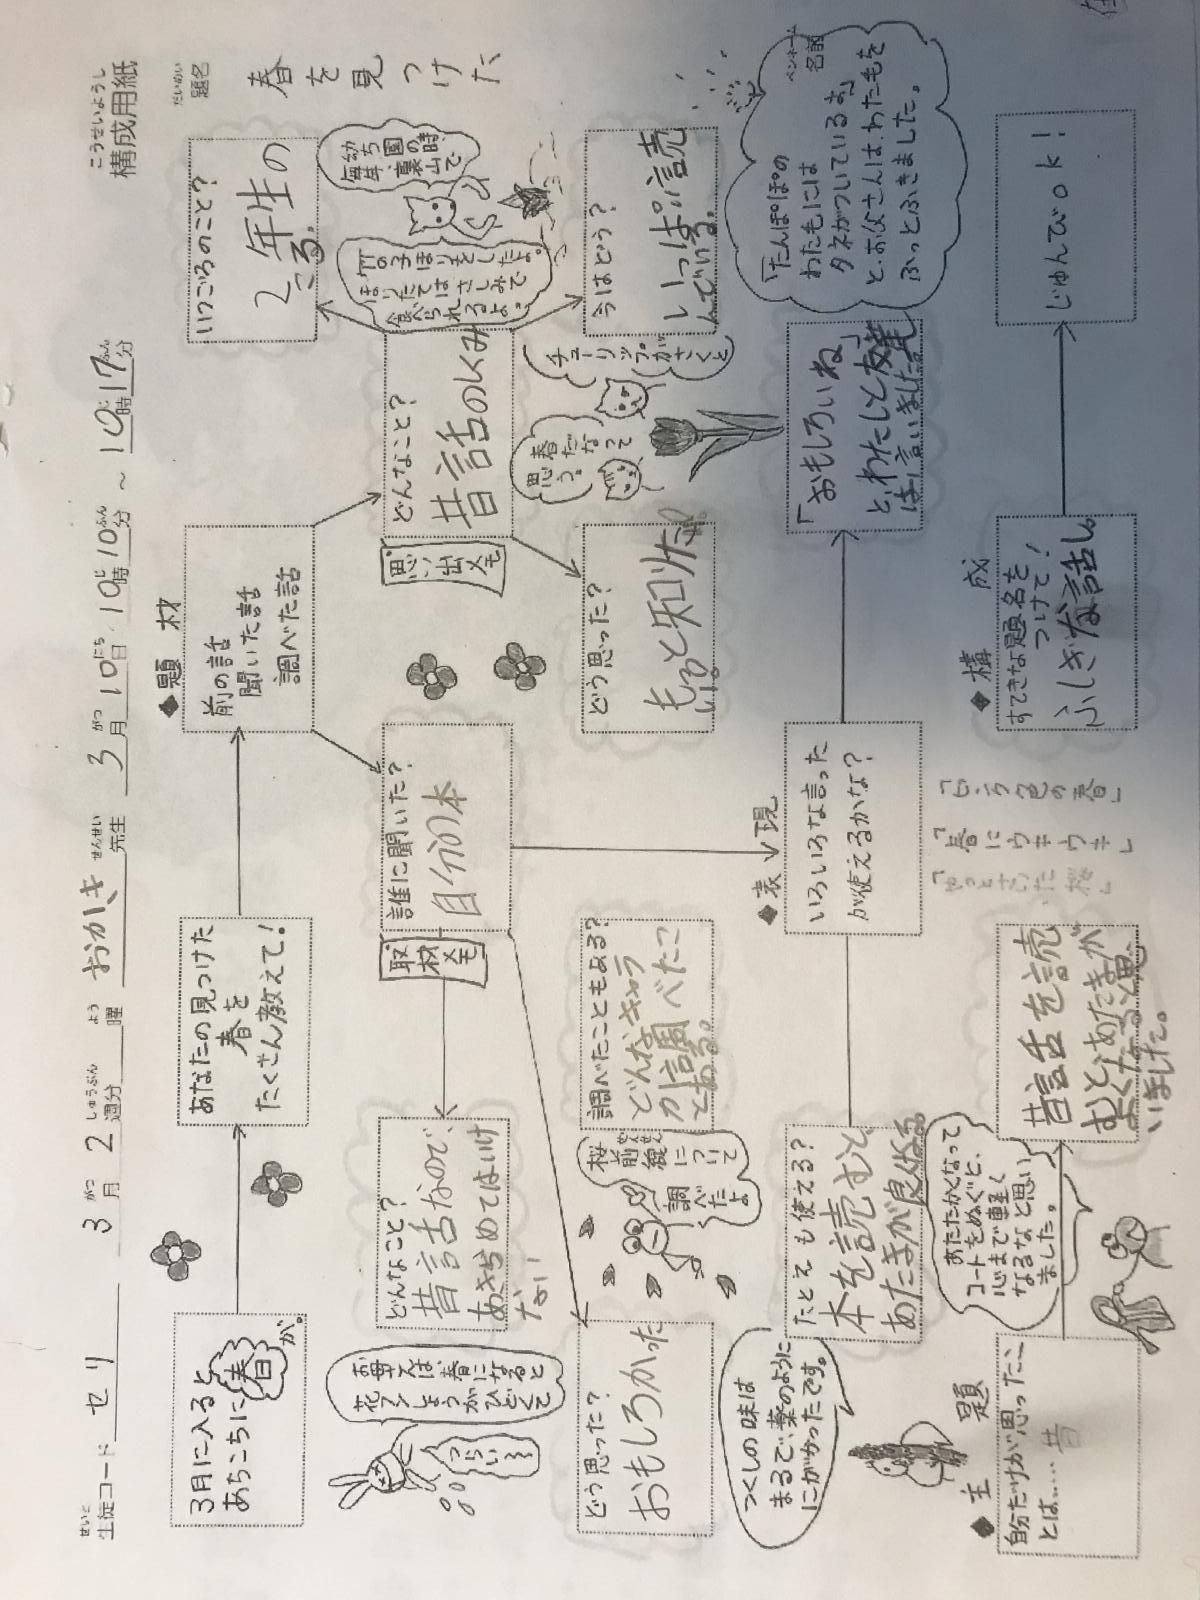 こうせいようし
構成用紙
せいと
生徒コード セリ 3月 2週分 曜 おかしき先生 3月10日 10時10分 ～ 10時17分
だいめい
題名
春を見つけた
3月に入ると
あちこちに春が。
あなたの見つけた
春を
たくさん教えて!
◆題材
前の話
聞いた話
調べた話
いつごろのこと?
2年生の
ころ。
毎年
幼ち園の時、
裏山で
竹の子ほりをしたよ。
ほりたてはさしみで
食べられるよ。
どんなこと?
昔話のしくみ
思い出メモ
誰に聞いた?
自分の本
取材メモ
どんなこと?
昔話なので、
あきらめてはいけ
ない
お母さんは、春になると
花フンしょうがひどくて
つらい
今はどう?
いっぱい読
んでいる。
チューリップがさくと
春だなって
思う。
どう思った?
もっと知りたい。
調べたこともある?
どんなキャラ
か調べたこ
とある。
桜前線
ぜんせん
について
調べたよ
どう思った?
おもしろかった
ペンネーム
名前
「たんぽぽの
わた毛には
タネがついているよ」
と、お父さんは、わた毛を
ふっとふきました。
「おもしろいね」
と、わたしと友達
は言いました。
◆表現
いろいろな言った
が使えるかな?
たとえも使える?
本を読むと
あたまが良くなる
つくしの味は
まるで、薬のように
にがかったです。
◆構成
すてきな題名を
つけて!
ふしぎな話し
じゅんびok!
「春にウキウキ」
◆主題
自分だけが思ったこ
とは……昔
昔話を読
むと、あたまが
よくなると思
いました。
あたたかくなって
コートをぬぐと、
心まで軽く
なるなと思い
ました。